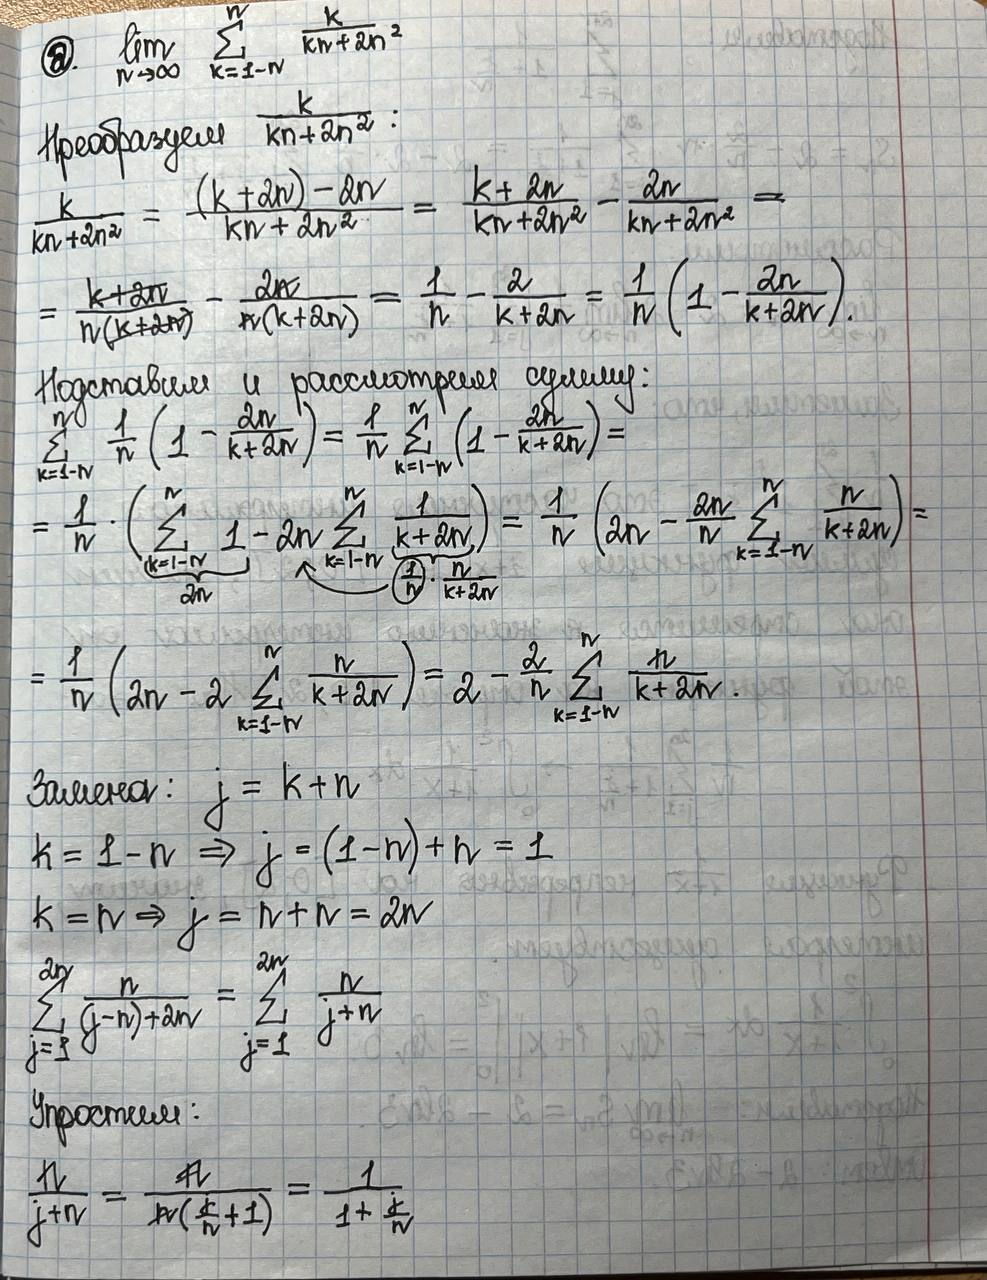 ②. lim_{n→∞} ∑_{k=1-n}^{n} k/(kn+2n²)
Преобразуем k/(kn+2n²):
k/(kn+2n²) = ((k+2n)-2n)/(kn+2n²) = (k+2n)/(kn+2n²) - 2n/(kn+2n²) =
= (k+2n)/(n(k+2n)) - 2n/(n(k+2n)) = 1/n - 2/(k+2n) = 1/n (1 - 2n/(k+2n)).
Подставим и рассмотрим сумму:
∑_{k=1-n}^{n} 1/n (1 - 2n/(k+2n)) = 1/n ∑_{k=1-n}^{n} (1 - 2n/(k+2n)) =
= 1/n · (∑_{k=1-n}^{n} 1 - 2n ∑_{k=1-n}^{n} 1/(k+2n)) = 1/n (2n - 2n/n ∑_{k=1-n}^{n} n/(k+2n)) =
2n 1/n · n/(k+2n)
= 1/n (2n - 2 ∑_{k=1-n}^{n} n/(k+2n)) = 2 - 2/n ∑_{k=1-n}^{n} n/(k+2n).
Замена: j = k+n
k = 1-n ⇒ j = (1-n)+n = 1
k = n ⇒ j = n+n = 2n
∑_{j=1}^{2n} n/((j-n)+2n) = ∑_{j=1}^{2n} n/(j+n)
Упростим:
n/(j+n) = n/(n(j/n+1)) = 1/(1+j/n)